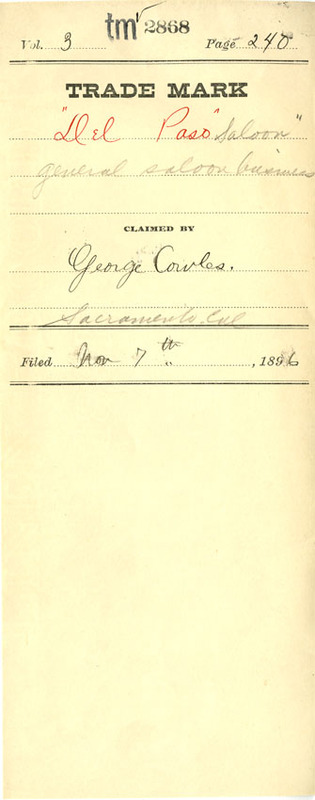 tm 2868
Vol. 3 Page 240
TRADE MARK
"Del Paso" Saloon"
general saloon business
CLAIMED BY
George Cowles.
Sacramento, Cal
Filed Nov 7th, 1896